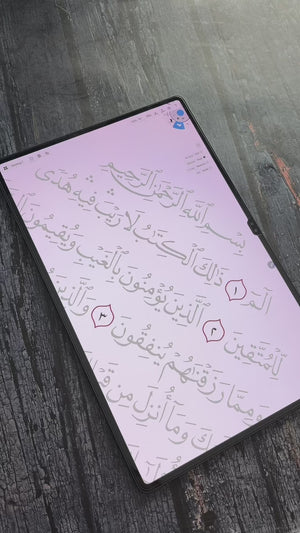 بِسْمِ ٱللَّهِ ٱلرَّحْمَٰنِ ٱلرَّحِيمِ
الٓمٓ ١ ذَٰلِكَ ٱلْكِتَٰبُ لَا رَيْبَ فِيهِ هُدًى
لِّلْمُتَّقِينَ ٢ ٱلَّذِينَ يُؤْمِنُونَ بِٱلْغَيْبِ وَيُقِيمُونَ
وَمِمَّا رَزَقْنَٰهُمْ يُنفِقُونَ ٣ وَٱلَّذِينَ
كَ وَمَآ أُنزِلَ مِن قَ